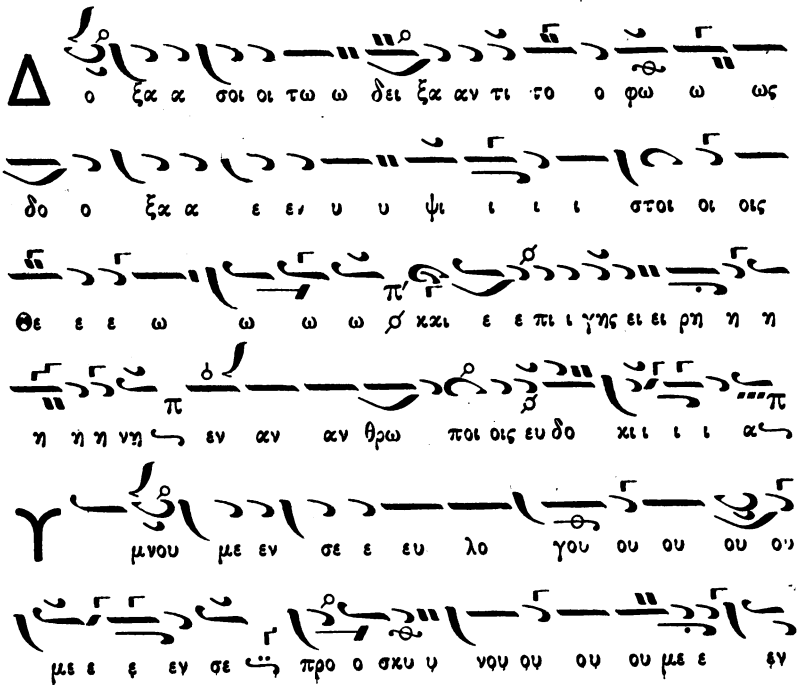 Δ ο ξα α σοι οι τω ω δει ξα αν τι το ο φω ω ως
δο ο ξα α ε εν υ υ ψι ι ι ι στοι οι οις
Θε ε ε ω ω ω ω και ε ε πι ι γης ει ει ρη η η
η η η νη εν αν αν θρω ποι οις ευ δο κι ι ι ι α
Υ μνου με εν σε ε ευ λο γου ου ου ου ου
με ε ε εν σε προ ο σκυ υ νου ου ου ου με ε εν